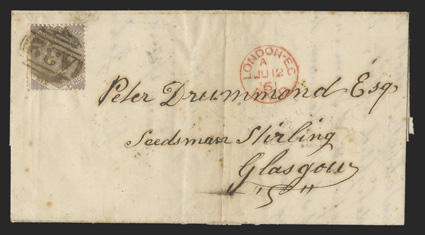 LONDON·E.C
A
JU 12
61
Peter Drummond Esq
Seedsman Stirling
Glasgow